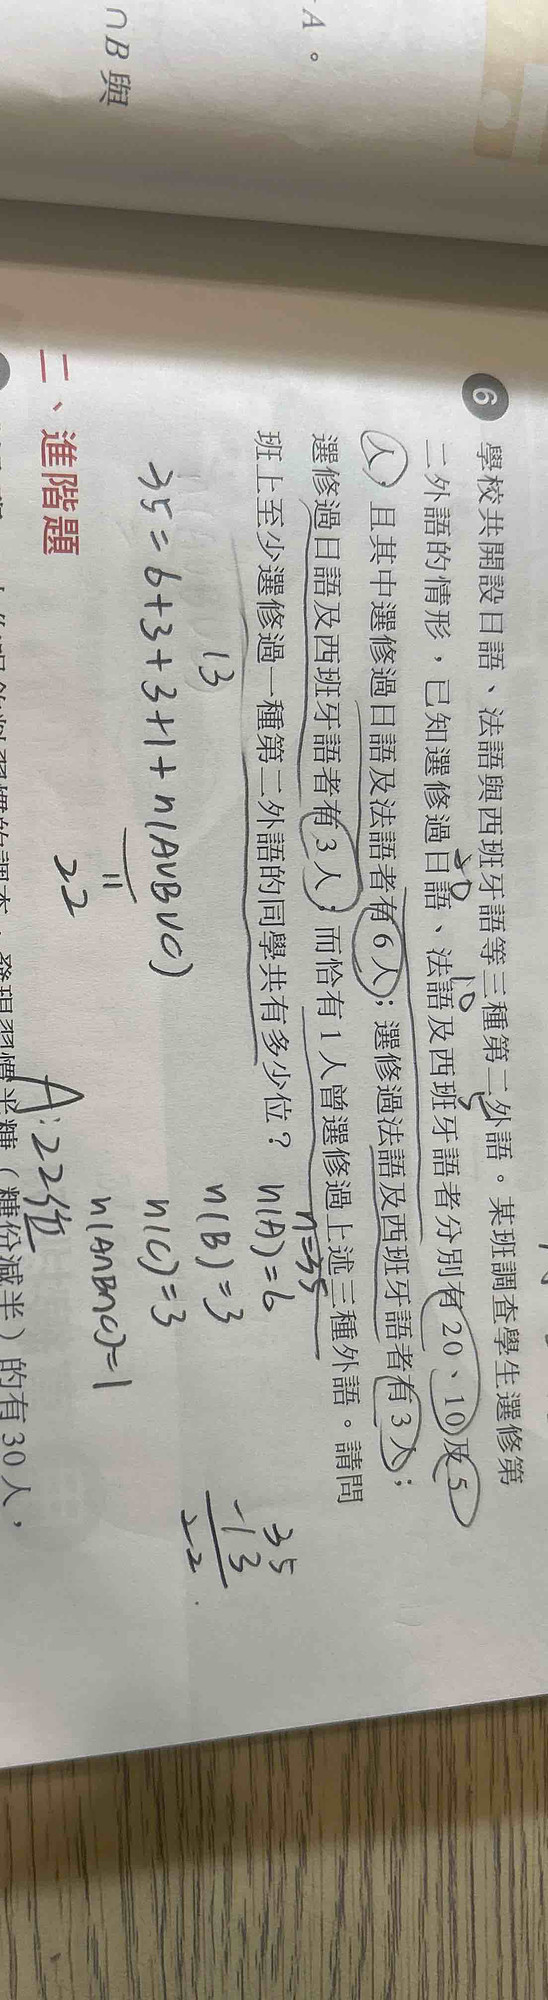 -A。
∩B與
6 學校共開設日語、法語與西班牙語等三種第二外語。某班調查學生選修第
二外語的情形，已知選修過日語、法語及西班牙語者分別有20、10及5
人，且其中選修過日語及法語者有6人；選修過法語及西班牙語者有3人；
選修過日語及西班牙語者有3人，而恰有1人曾選修過上述三種外語。請問
班上至少選修過一種第二外語的同學共有多少位？
20 10 5
n=35
n(A)=6
n(B)=3
n(C)=3
n(A∩B∩C)=1
13
35=6+3+3+1+n(A∪B∪C)
=
22
35
-13
22
A:22位
二、進階題
半糖（糖份減半）的有30人，